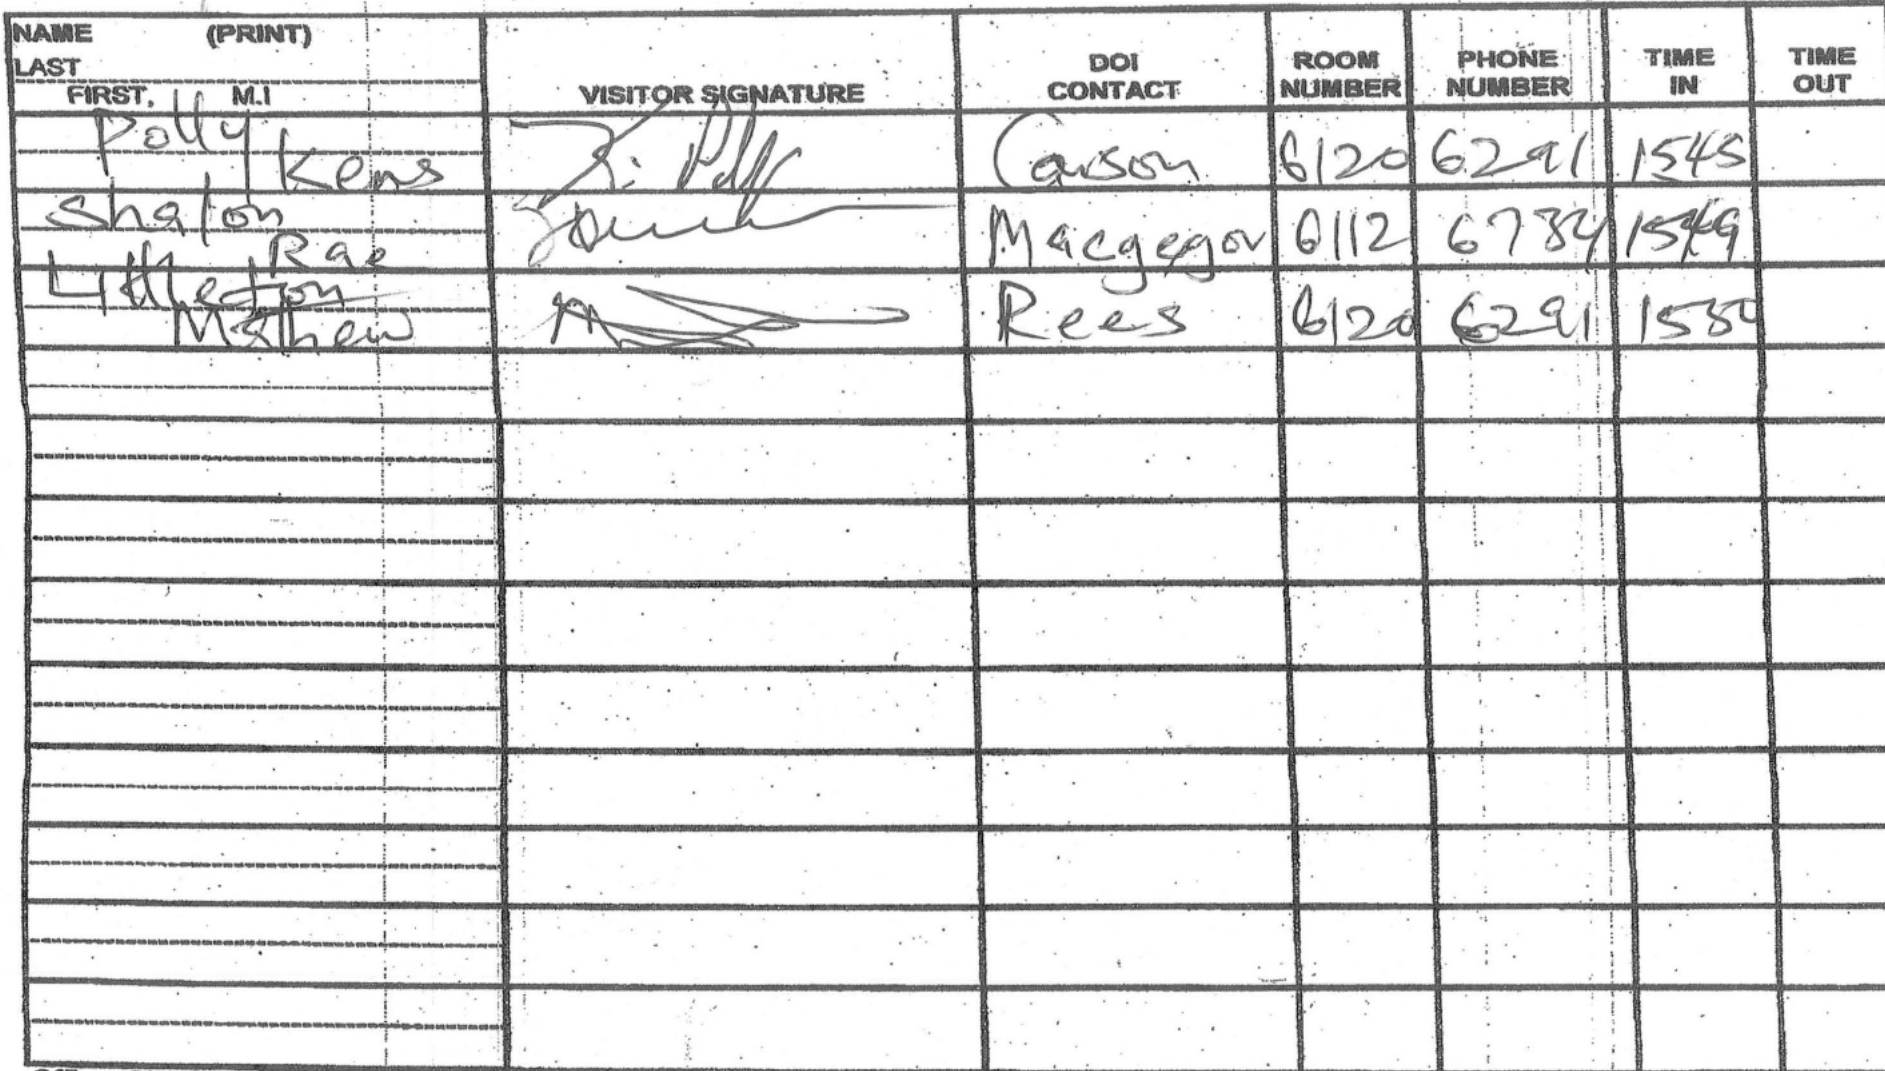 NAME (PRINT)
LAST
FIRST, M.I
VISITOR SIGNATURE
DOI CONTACT
ROOM NUMBER
PHONE NUMBER
TIME IN
TIME OUT
Polly
Kens Carson 6120 6291 1545
Shalon
Rae Macgegor 6112 6784 1549
Littleton
Mathew Rees 6120 6291 1550